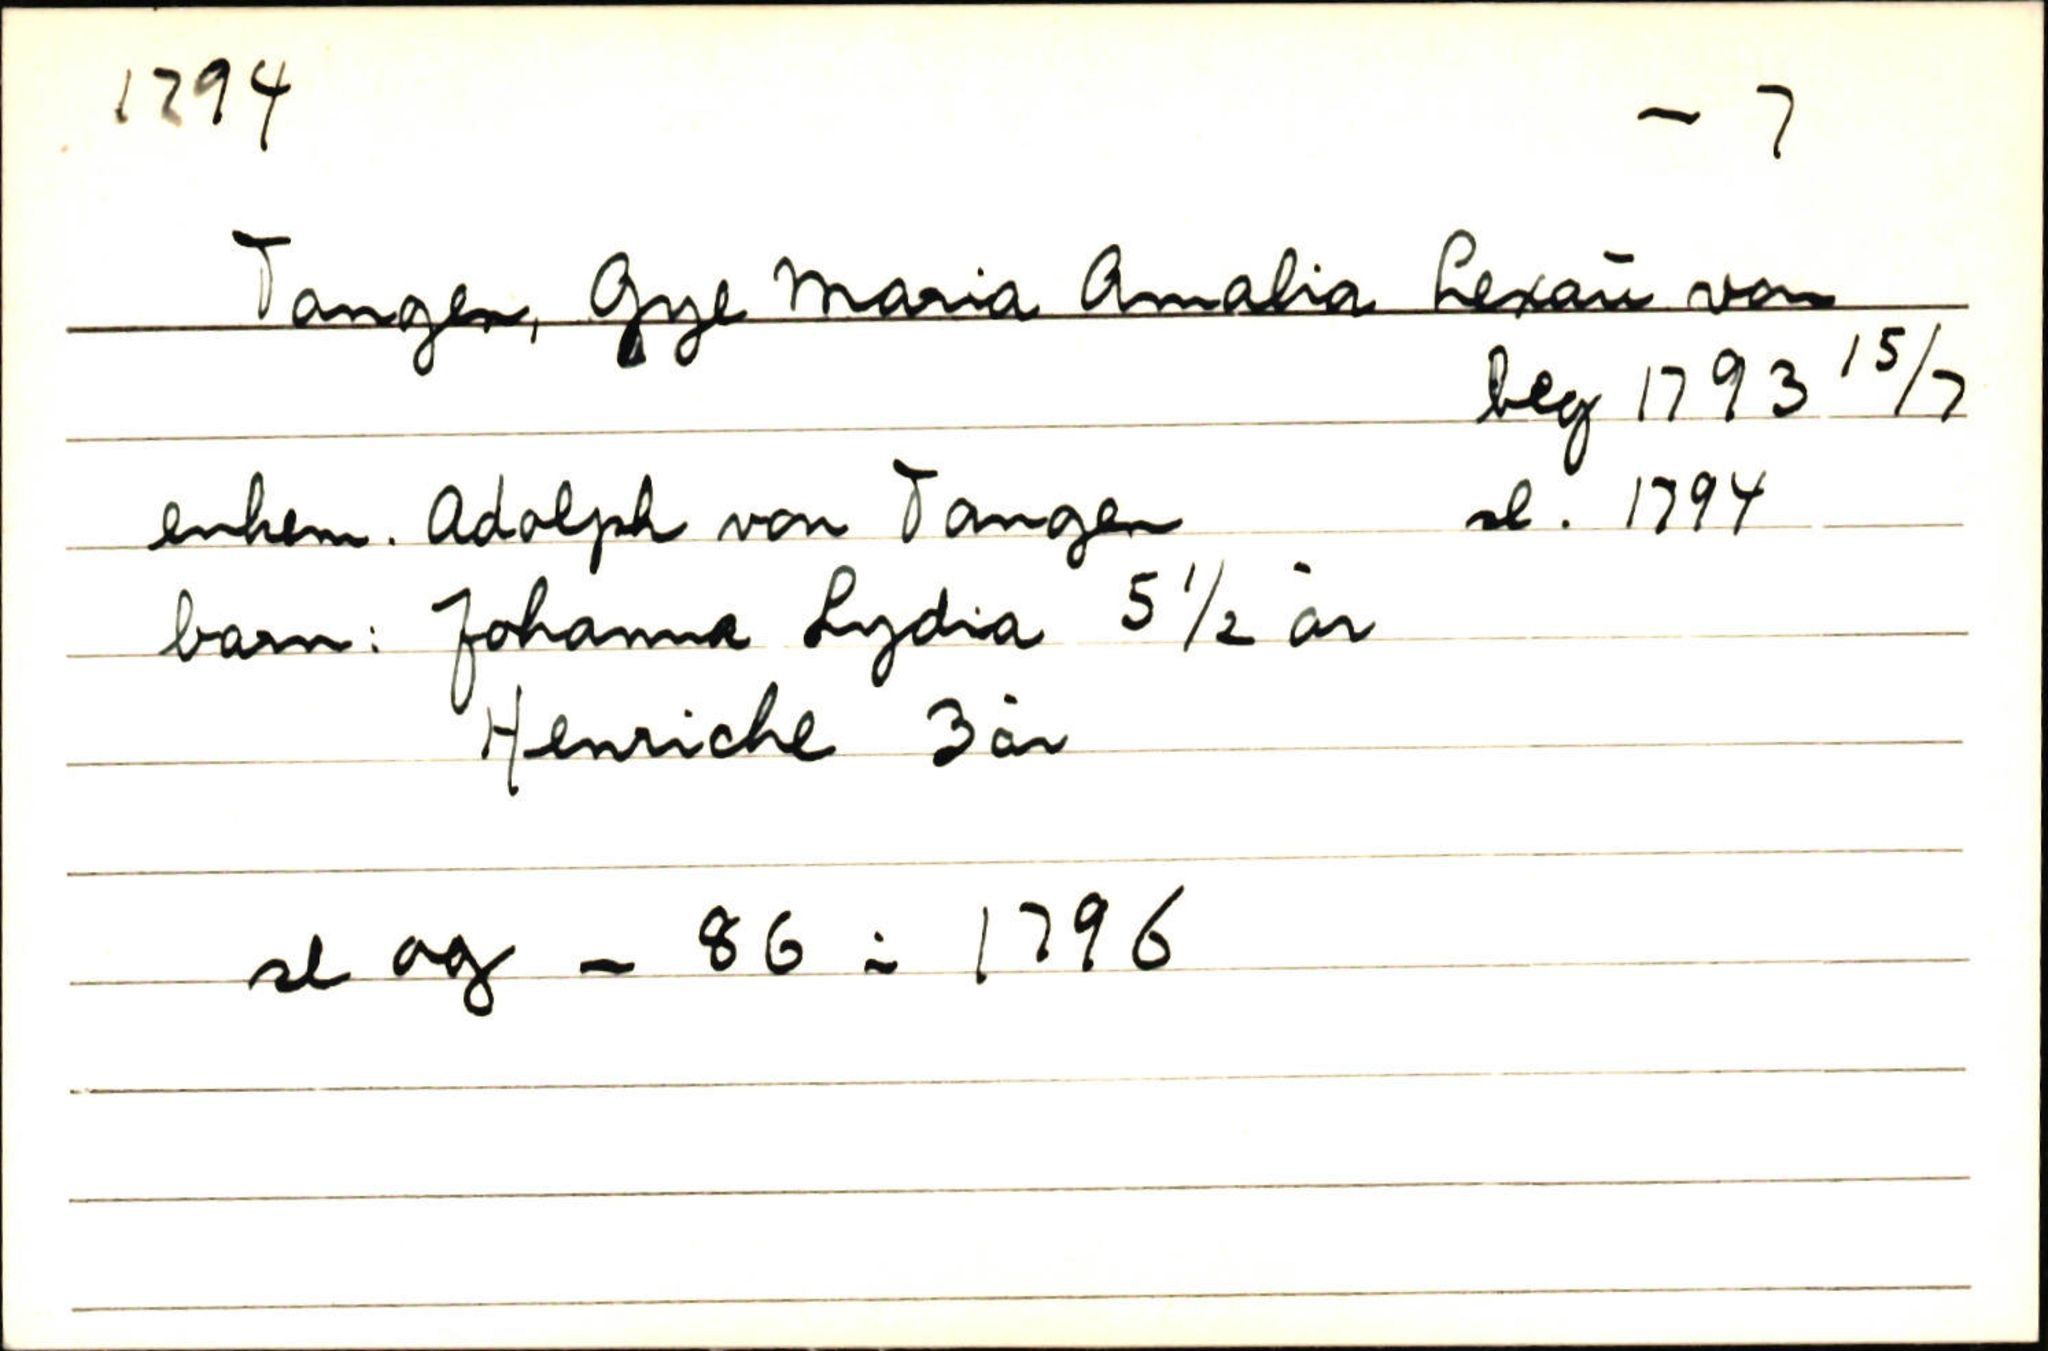 1794 - 7
Tangen, Gye Maria Amalia Lexaū von
beg 1793 15/7
enkem. Adolph von Tangen sl. 1794
barn: Johanna Lydia 5 1/2 år
Henriche 3 år
se og - 86 : 1796